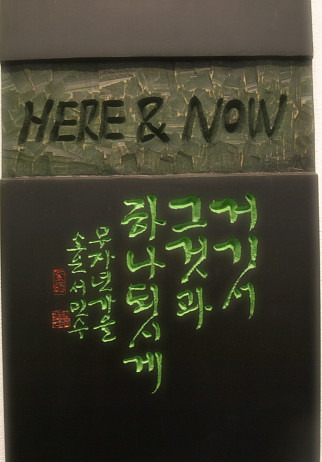 HERE & NOW
거기서
그것과
하나되시게
무자년가을
서민수